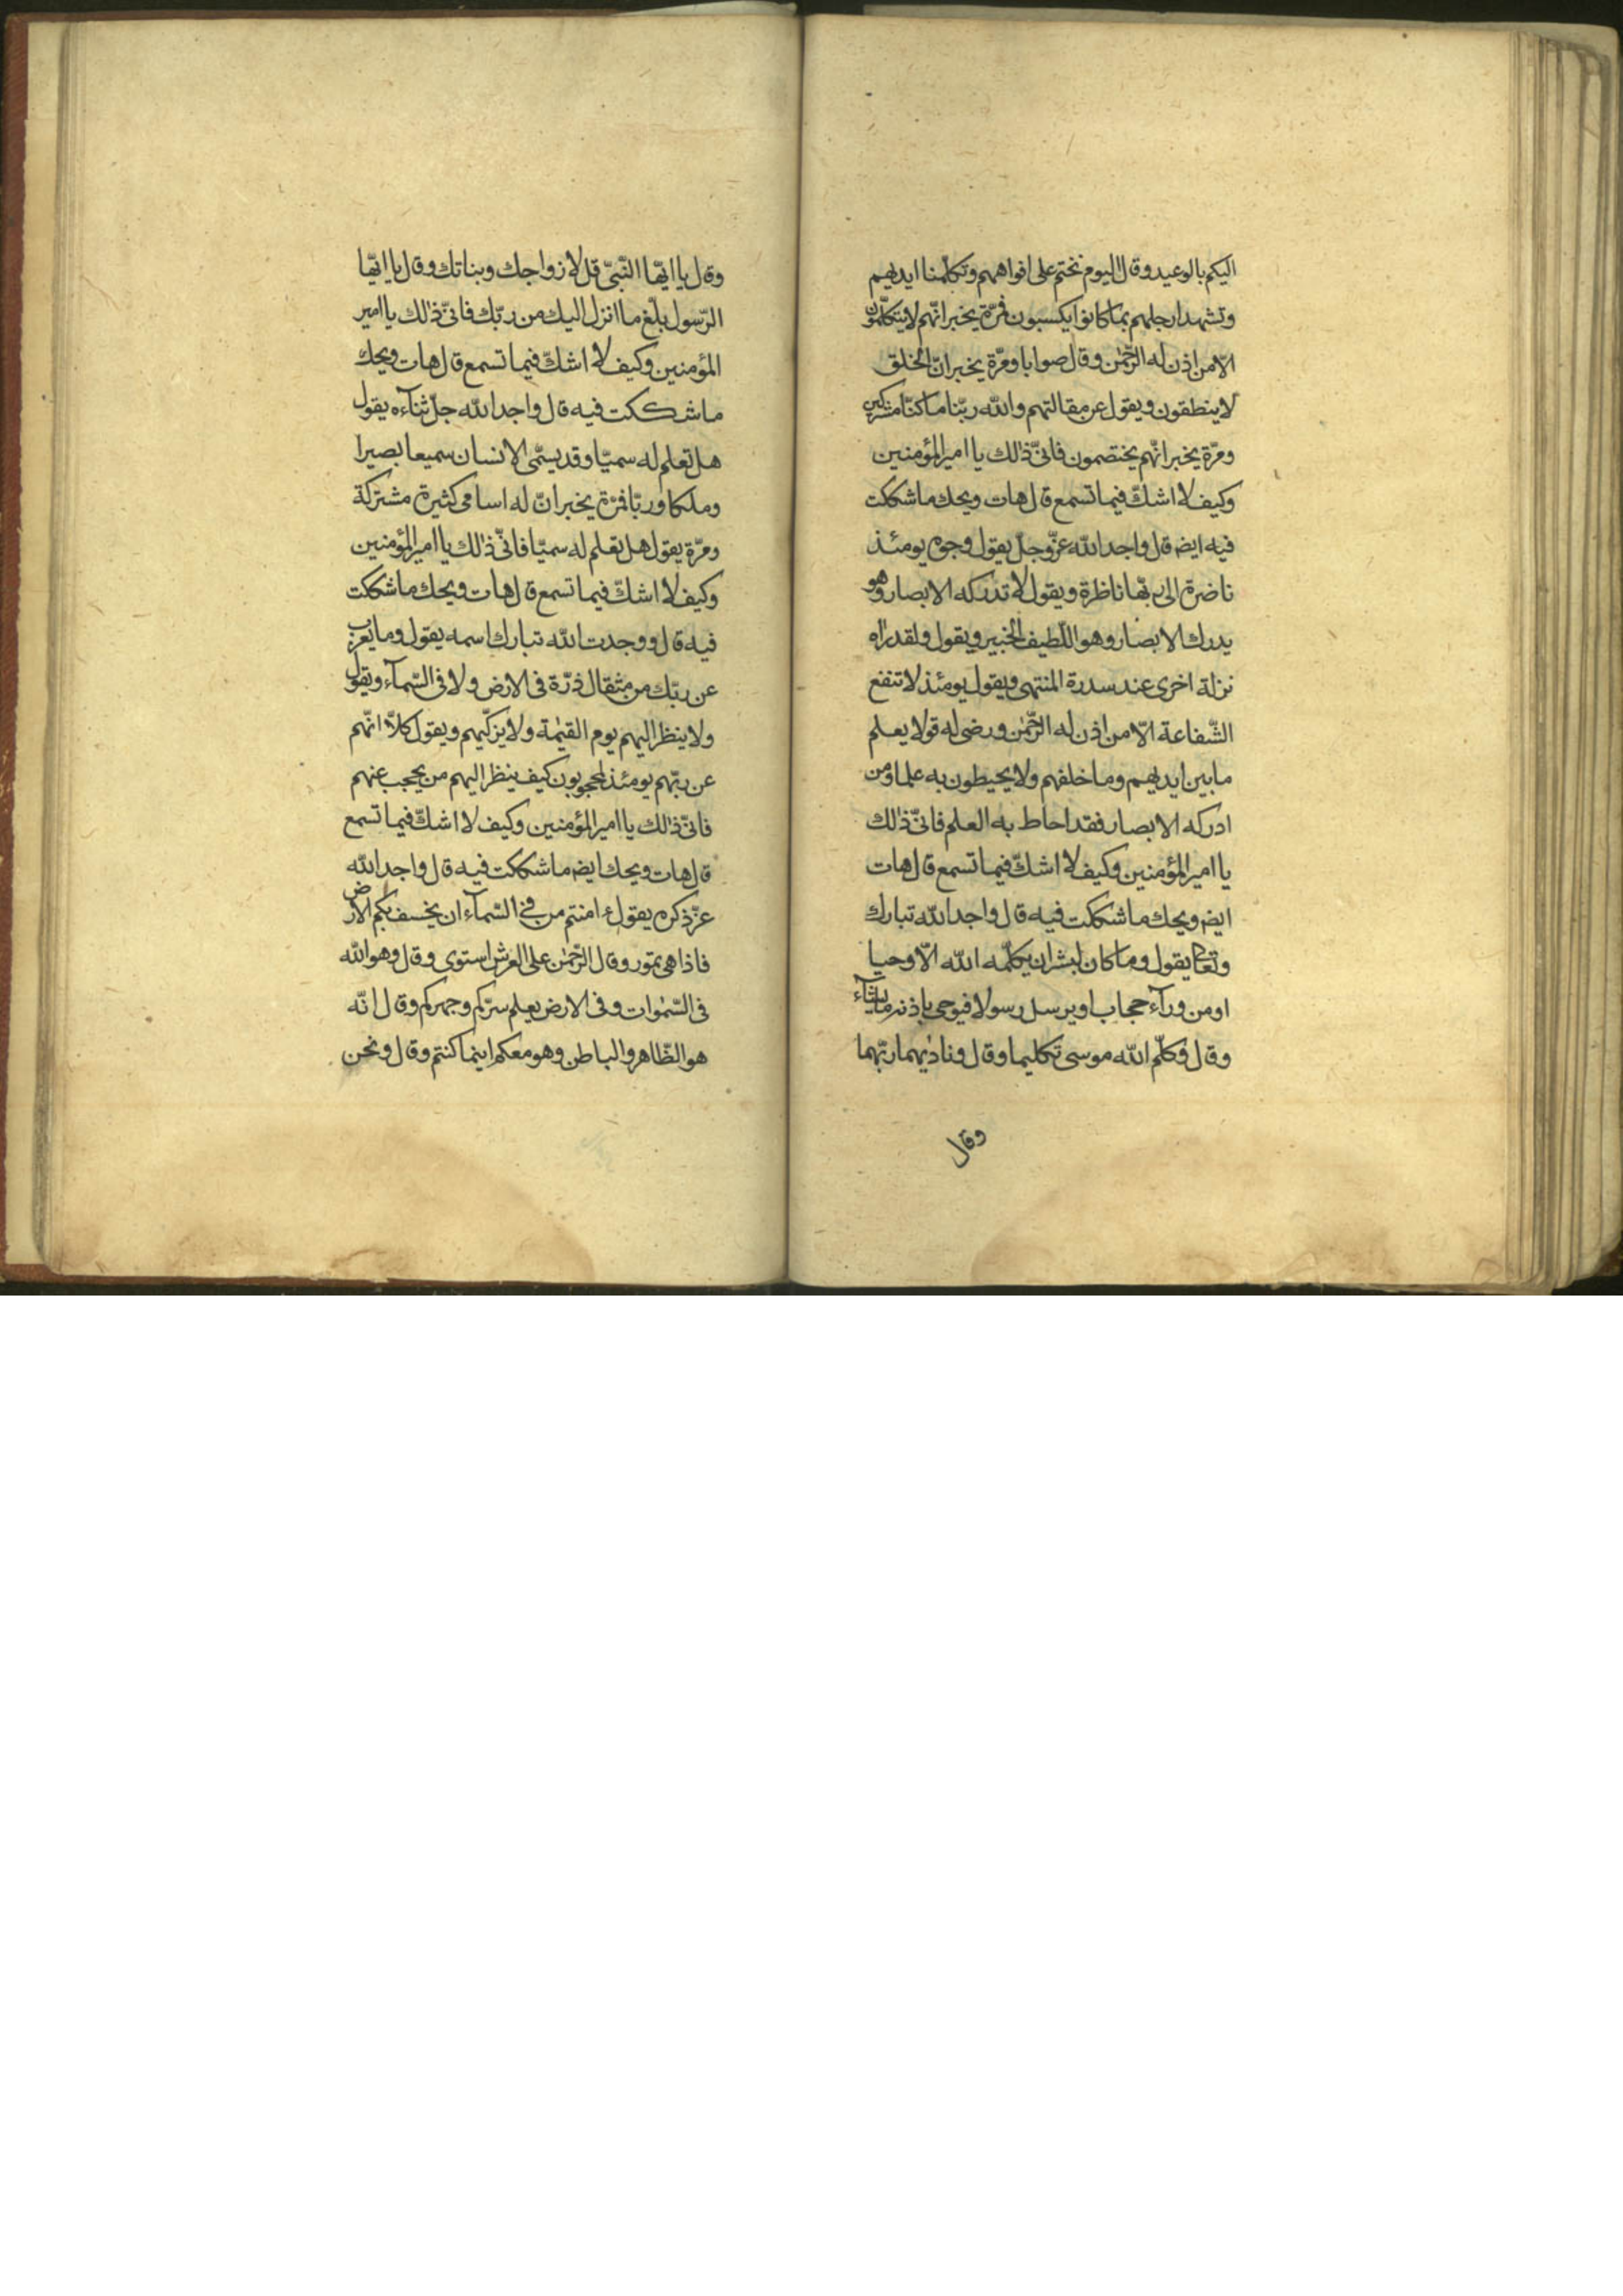 اليكم بالوعيد وقال اليوم نختم على افواههم وتكلّمنا ايديهم
وتشهد ارجلهم بما كانوا يكسبون فمرّة يخبر انّهم لا يتكلّمون
الّا من اذن له الرّحمٰن وقال صوابا ومرّة يخبر انّ الخلق
لا ينطقون ويقول عن مقالتهم والله ربّنا ما كنّا مشركين
ومرّة يخبر انّهم يختصمون فانّى ذٰلك يا امير المؤمنين
وكيف لا اشكّ فيما تسمع قال هات ويحك ما شككت
فيه ايضا قال واجد الله عزّ وجلّ يقول وجوه يومئذ
ناضرة الى ربّها ناظرة ويقول لا تدركه الابصار وهو
يدرك الابصار وهو اللّطيف الخبير ويقول ولقد راٰه
نزلة اخرى عند سدرة المنتهى ويقول يومئذ لا تنفع
الشّفاعة الّا من اذن له الرّحمٰن ورضى له قولا يعلم
ما بين ايديهم وما خلفهم ولا يحيطون به علما ومن
ادركه الابصار فقد احاط به العلم فانّى ذٰلك
يا امير المؤمنين وكيف لا اشكّ فيما تسمع قال هات
ايضا ويحك ما شككت فيه قال واجد الله تبارك
وتعالى يقول وما كان لبشر ان يكلّمه الله الّا وحيا
او من ورآء حجاب او يرسل رسولا فيوحى باذنه ما يشآء
وقال وكلّم الله موسى تكليما وقال وناديٰهما ربّهما
وقال
وقال يا ايّها النّبىّ قل لازواجك وبناتك وقال يا ايّها
الرّسول بلّغ ما انزل اليك من ربّك فانّى ذٰلك يا امير
المؤمنين وكيف لا اشكّ فيما تسمع قال هات ويحك
ما شككت فيه قال واجد الله جلّ ثنآءه يقول
هل تعلم له سميّا وقد يسمّى الانسان سميعا بصيرا
وملكا وربّا فمرّة يخبر انّ له اسامى كثيرة مشتركة
ومرّة يقول هل تعلم له سميّا فانّى ذٰلك يا امير المؤمنين
وكيف لا اشكّ فيما تسمع قال هات ويحك ما شككت
فيه قال ووجدت الله تبارك اسمه يقول وما يعزب
عن ربّك من مثقال ذرّة فى الارض ولا فى السّمآء ويقول
ولا ينظر اليهم يوم القيٰمة ولا يزكّيهم ويقول كلّا انّهم
عن ربّهم يومئذ لمحجوبون كيف ينظر اليهم من يحجب عنهم
فانّى ذٰلك يا امير المؤمنين وكيف لا اشكّ فيما تسمع
قال هات ويحك ايضا ما شككت فيه قال واجد الله
عزّ ذكره يقول ءامنتم من فى السّمآء ان يخسف بكم الارض
فاذا هى تمور وقال الرّحمٰن على العرش استوى وقال وهو الله
فى السّمٰوات وفى الارض يعلم سرّكم وجهركم وقال انّه
هو الظّاهر والباطن وهو معكم اينما كنتم وقال ونحن